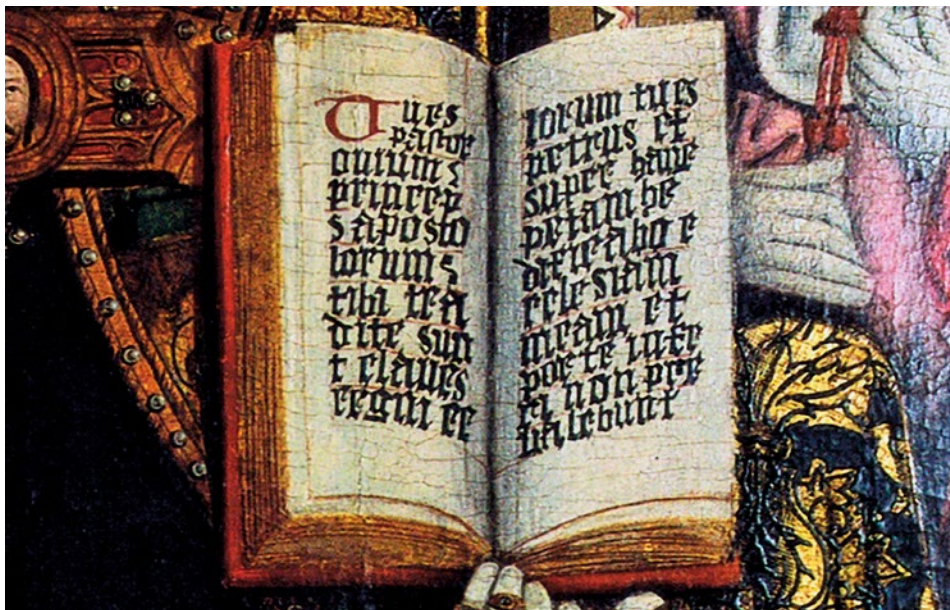 Tu es
pastor
ouium ⁊
princep
s aposto
lorum ⁊
tibi tra
dite sun
t claues
regni ce
lorum tu es
petrus et
super hanc
petam he
dificabo e
cclesiam
meam et
porte infe
ri non pre
ualebunt